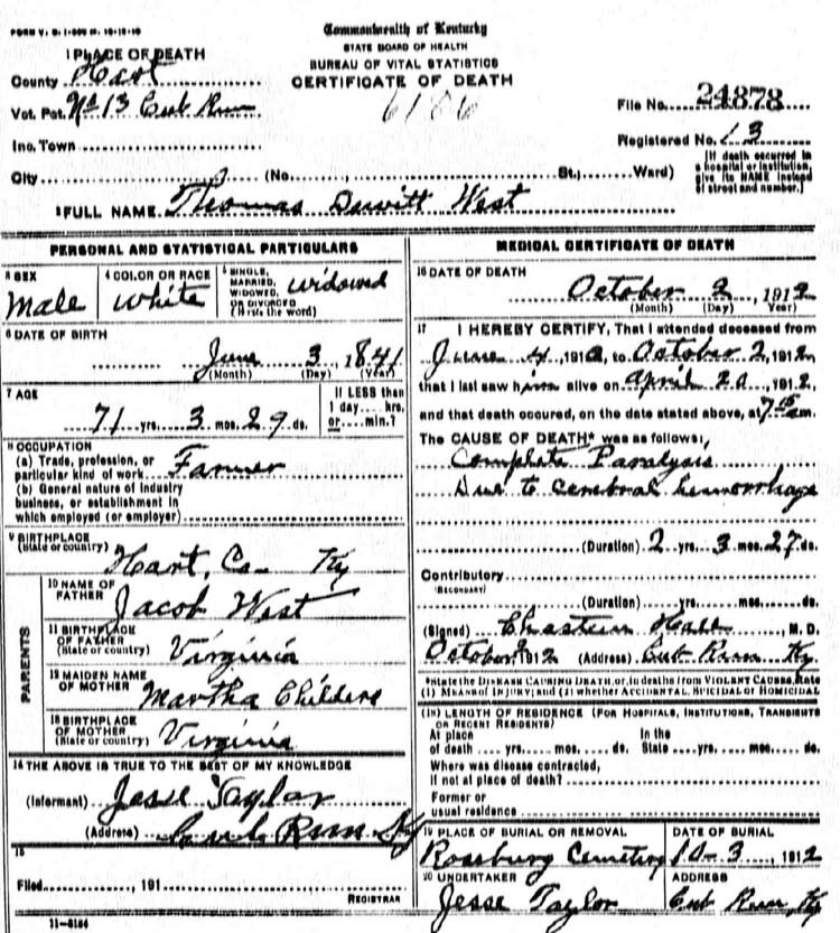 FORM V. S. 1-
Commonwealth of Kentucky
STATE BOARD OF HEALTH
BUREAU OF VITAL STATISTICS
CERTIFICATE OF DEATH
1 PLACE OF DEATH
County Hart
Vot. Pct. No 13 Cub Run
6186
File No. 24878
Inc. Town
Registered No. 13
City (No. St.; Ward)
[If death occurred in a hospital or institution, give its NAME instead of street and number.]
2 FULL NAME Thomas Dewitt West
PERSONAL AND STATISTICAL PARTICULARS
3 SEX
Male
4 COLOR OR RACE
White
5 SINGLE, MARRIED, WIDOWED, OR DIVORCED (Write the word)
widowed
6 DATE OF BIRTH
June 3, 1841
(Month) (Day) (Year)
7 AGE
71 yrs. 3 mos. 29 ds.
If LESS than 1 day.... hrs. or.... min.?
8 OCCUPATION
(a) Trade, profession, or particular kind of work Farmer
(b) General nature of industry business, or establishment in which employed (or employer)
9 BIRTHPLACE
(State or country) Hart, Co- Ky
PARENTS
10 NAME OF FATHER
Jacob West
11 BIRTHPLACE OF FATHER (State or country)
Virginia
12 MAIDEN NAME OF MOTHER
Martha Childers
13 BIRTHPLACE OF MOTHER (State or country)
Virginia
14 THE ABOVE IS TRUE TO THE BEST OF MY KNOWLEDGE
(Informant) Jesse Taylor
(Address) Cub Run Ky
15
Filed, 191
REGISTRAR
11-6184
MEDICAL CERTIFICATE OF DEATH
16 DATE OF DEATH
October 2, 1912
(Month) (Day) (Year)
17 I HEREBY CERTIFY, That I attended deceased from
June 4, 1910, to October 2, 1912,
that I last saw him alive on April 20, 1912,
and that death occured, on the date stated above, at 7 15 am.
The CAUSE OF DEATH* was as follows:
Complete Paralysis
Due to cerebral hemorrhage
(Duration) 2 yrs. 3 mos. 27 ds.
Contributory
(SECONDARY)
(Duration) yrs. mos. ds.
(Signed) Chastein Hall, M.D.
October 2, 1912 (Address) Cub Run Ky
*State the DISEASE CAUSING DEATH, or, in deaths from VIOLENT CAUSES, state
(1) MEANS of INJURY; and (2) whether ACCIDENTAL, SUICIDAL or HOMICIDAL
(18) LENGTH OF RESIDENCE (FOR HOSPITALS, INSTITUTIONS, TRANSIENTS OR RECENT RESIDENTS)
At place of death .... yrs. .... mos. .... ds. In the State .... yrs. .... mos. .... ds.
Where was disease contracted, if not at place of death?
Former or usual residence
19 PLACE OF BURIAL OR REMOVAL
Roseburg Cemetery
DATE OF BURIAL
10-3, 1912
20 UNDERTAKER
Jesse Taylor
ADDRESS
Cub Run, Ky